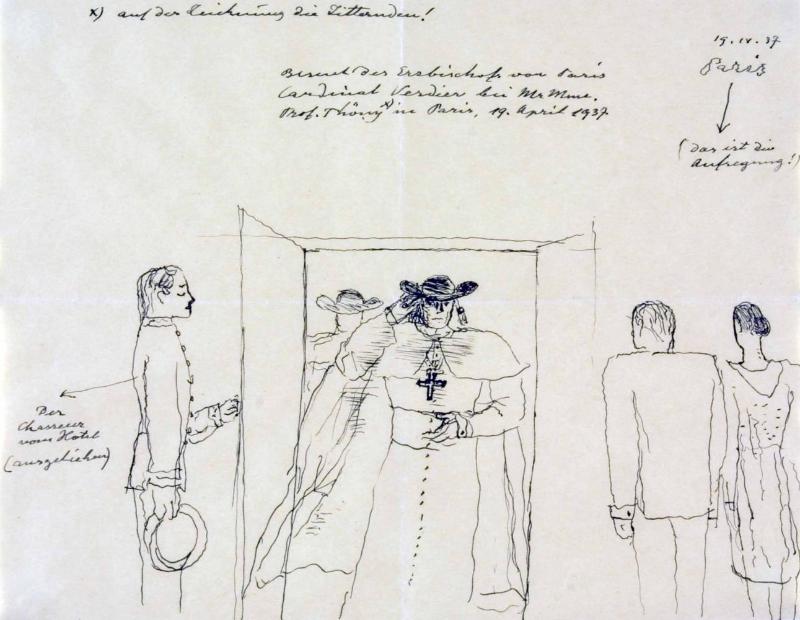 x) auf der Zeichnung die Zitternden!
19.IV.37
Paris
Besuch des Erzbischofs von Paris
Cardinal Verdier bei Mr Mme.
Prof. Thöny x) in Paris, 19. April 1937
(das ist die
Aufregung!)
Der
Chasseur
vom Hotel
(ausgeliehen)